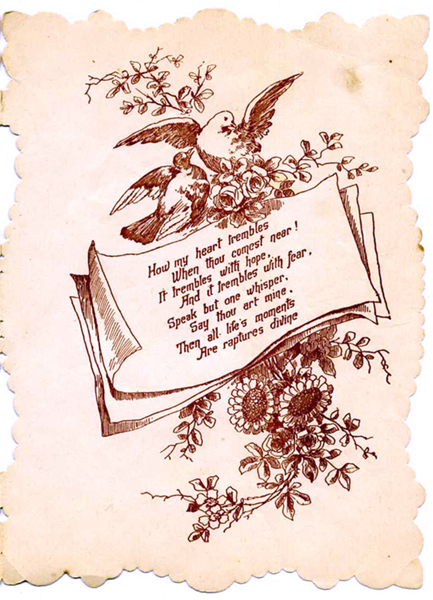 How my heart trembles
When thou comest near!
It trembles with hope,
And it trembles with fear.
Speak but one whisper.
Say thou art mine.
Then all life's moments
Are raptures divine